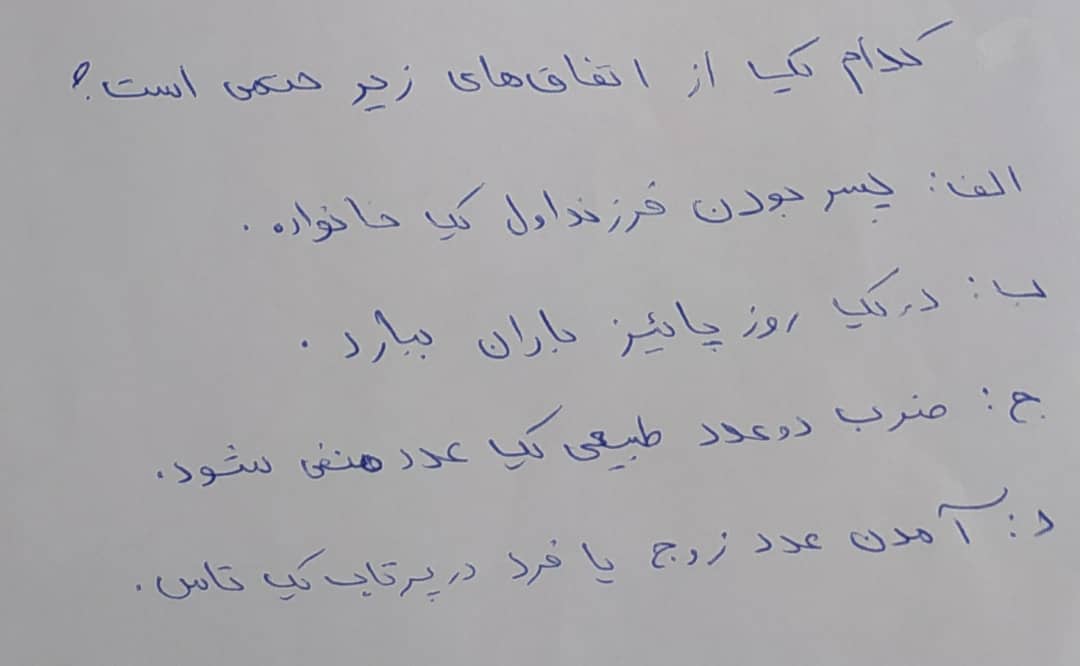 کدام یک از اتفاق‌های زیر حتمی است؟
الف: پسر بودن فرزند اول یک خانواده.
ب: در یک روز پائیز باران ببارد.
ج: ضرب دو عدد طبیعی یک عدد منفی شود.
د: آمدن عدد زوج یا فرد در پرتاب یک تاس.